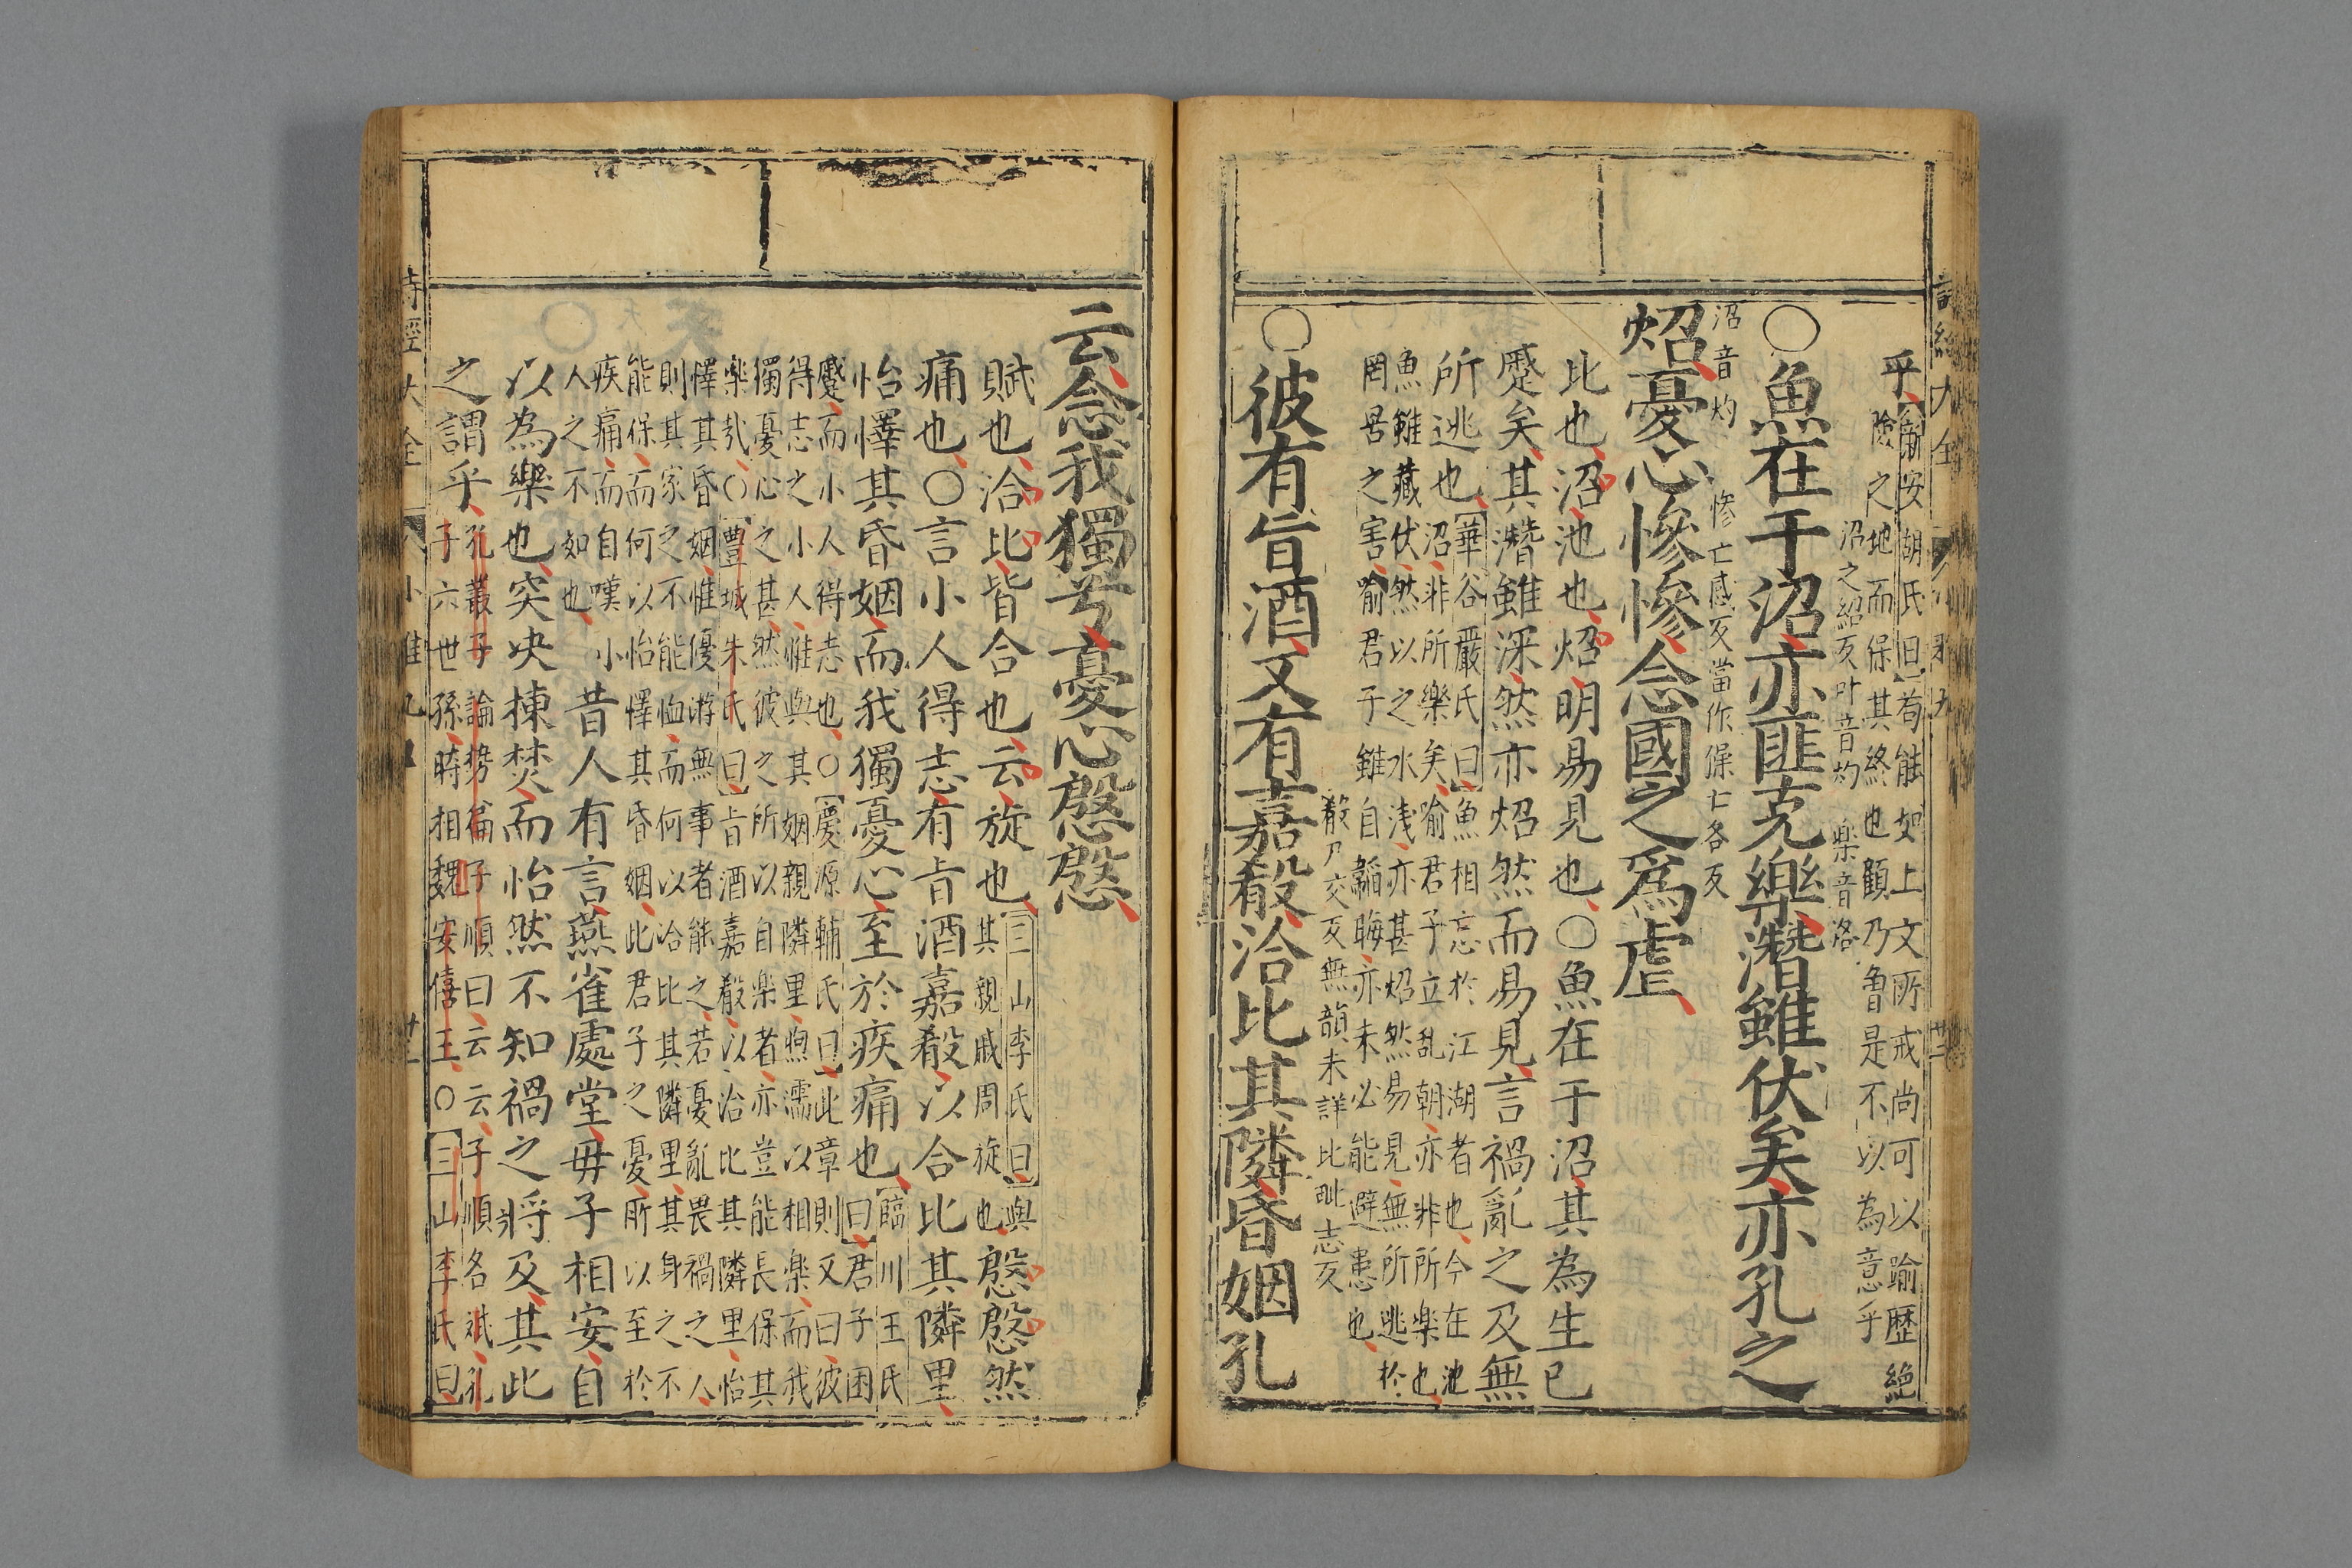 乎
新安胡氏曰苟能如上文所戒尚可以踰歷絶
險之地而保其終也顧乃魯是不以為意乎
○魚在于沼
沼之紹反叶音灼
亦匪克樂
樂音洛
潛雖伏矣亦孔之
炤
沼音灼
憂心慘慘
慘七感反當作懆七各反
念國之爲虐
比也沼池也炤明易見也○魚在于沼其為生已
蹙矣其潛雖深然亦炤然而易見言禍亂之及無
所逃也
華谷嚴氏曰魚相忘於江湖者也今在池
沼非所樂矣喻君子立乱朝亦非所樂也
魚雖藏伏然以之水浅亦甚炤然易見無所逃於
罔罟之害喻君子雖自韜晦亦未必能避患也
○彼有旨酒又有嘉殽
殽戶交反無韻未詳
洽比其隣
比毗志反
昏姻孔
云念我獨兮憂心慇慇
賦也洽比皆合也云旋也
三山李氏曰與
其親戚周旋也
慇慇然
痛也○言小人得志有旨酒嘉殽以合比其隣里
怡懌其昏姻而我獨憂心至於疾痛也
臨川王氏
曰君子困
蹙而小人得志也○慶源輔氏曰此章則又曰彼
得志之小人惟與其姻親隣里喣濡以相樂而我
獨憂心之甚然彼之所以自樂者亦豈能長保其
樂㢤○豐城朱氏曰旨酒嘉殽以洽比其隣里怡
懌其昏姻惟優游無事者能之若憂亂畏禍之人
則其家之不能恤而何以洽比其隣里其身之不
能保而何以怡懌其昏姻此君子之憂所以至於
疾痛而自嘆小
人之不如也
昔人有言燕雀處堂毋子相安自
以為樂也突决棟焚而怡然不知禍之將及其此
之謂乎
孔叢子論勢篇子順曰云云子順名斌孔
子六世孫時相魏安僖王○三山李氏曰
詩經大全 小雅九 廿一